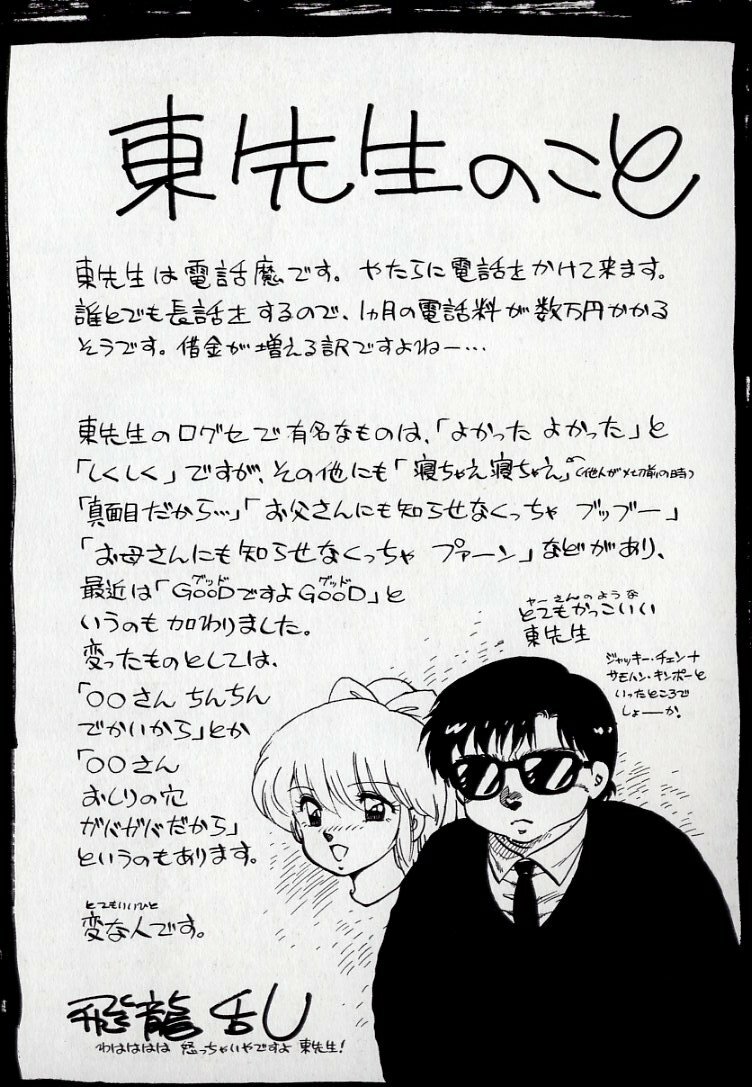 東先生のこと
東先生は電話魔です。やたらに電話をかけて来ます。
誰とでも長話をするので、1ヵ月の電話料が数万円かかる
そうです。借金が増える訳ですよねー…
東先生の口グセで有名なものは、「よかった よかった」と
「しくしく」ですが、その他にも「寝ちゃえ寝ちゃえ」(他人が〆切前の時)
「真面目だから…」「お父さんにも知らせなくっちゃ ブッブー」
「お母さんにも知らせなくっちゃ プァーン」などがあり、
グッド グッド
最近は「GOODですよGOOD」と
いうのも加わりました。
変ったものとしては、
「○○さん ちんちん
でかいから」とか
「○○さん
おしりの穴
ガバガバだから」
というのもあります。
とてもいいひと
変な人です。
ヤーさんのような
とてもかっこいい
東先生
ジャッキー・チェン+
サモハン・キンポーと
いったところで
しょーか。
飛龍乱
わはははは 怒っちゃいやですよ 東先生!